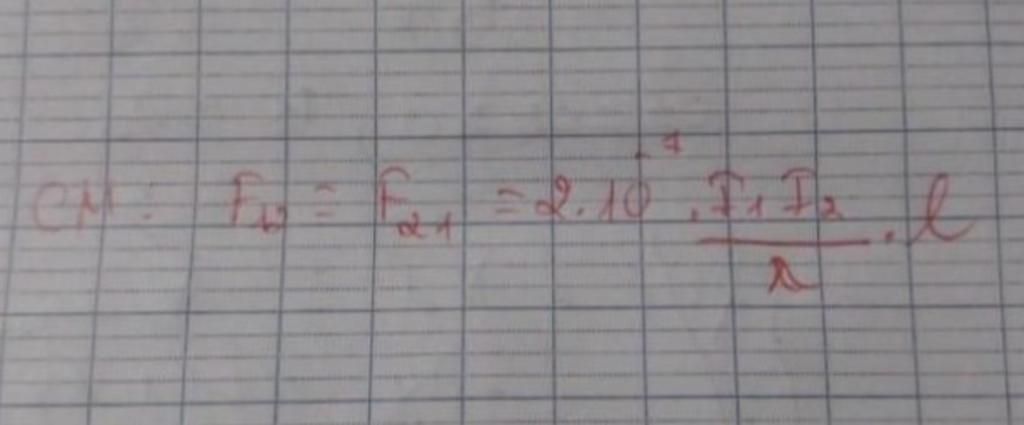 CM: F₁₂ = F₂₁ = 2.10⁻⁷. I₁ I₂ / r . l